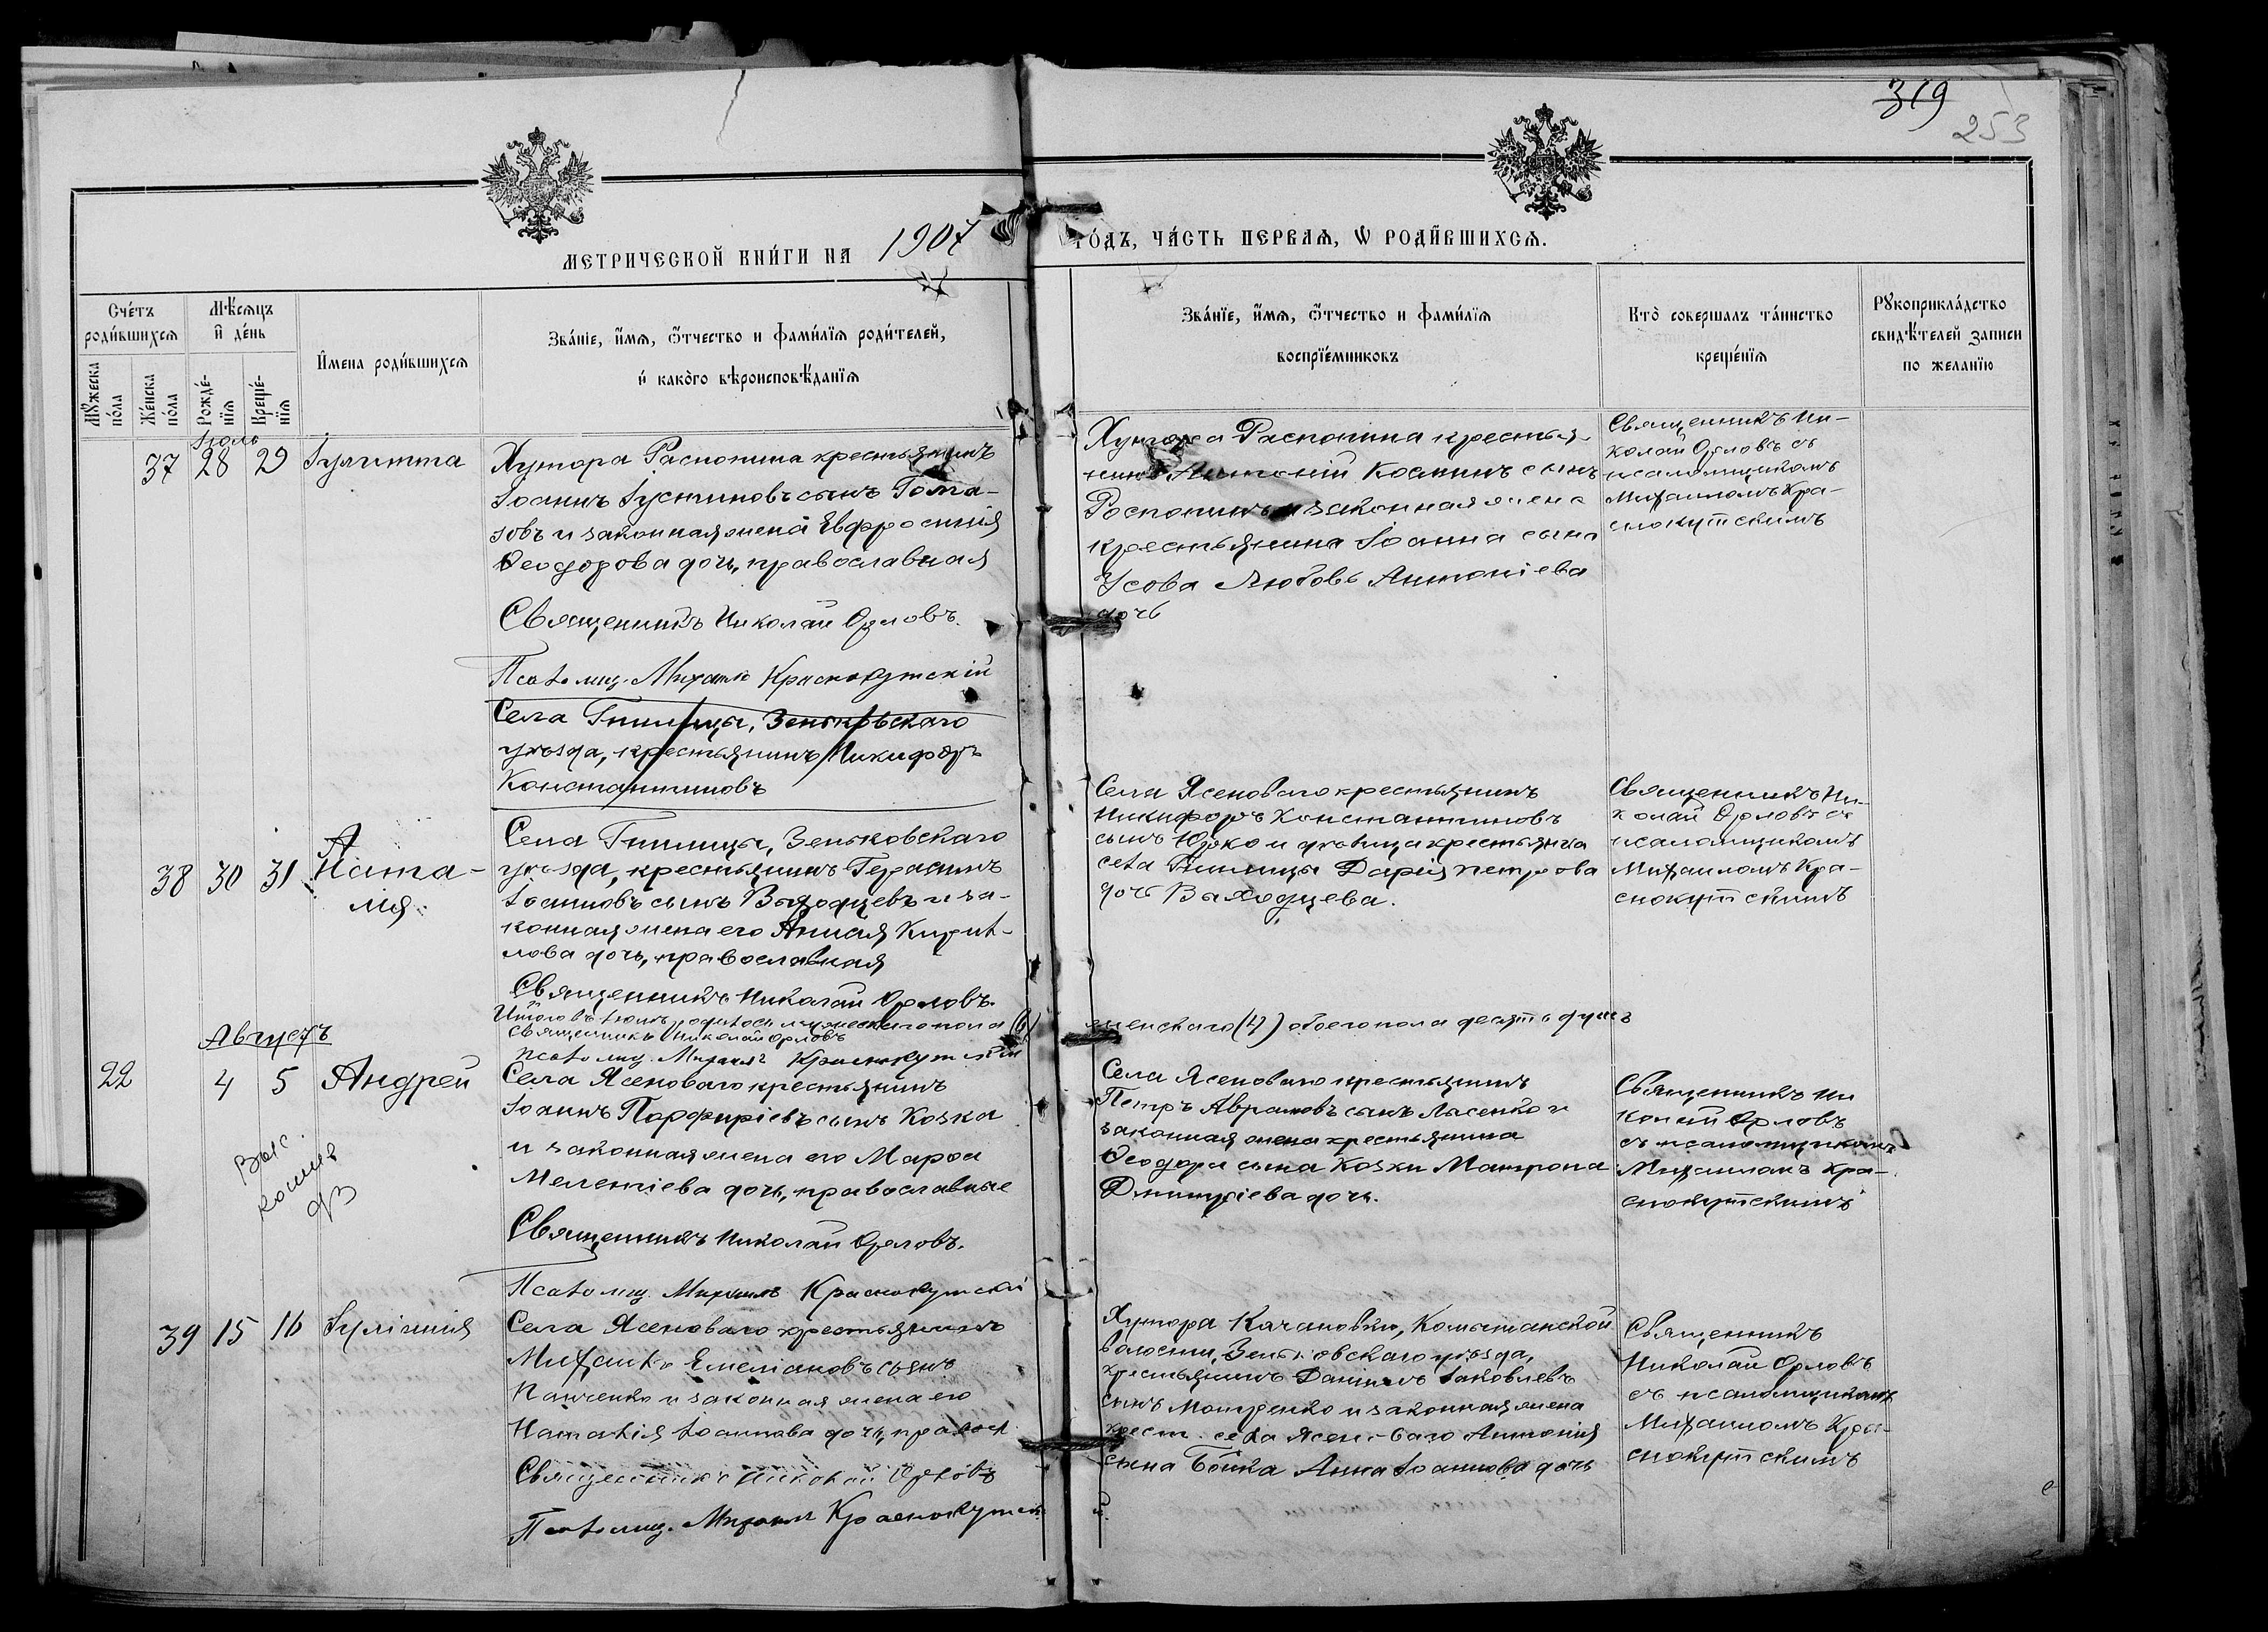 319
253
МЕТРИЧЕСКОЙ КНИ́ГИ НА 1907 ГО́ДЪ, ЧА́СТЬ ПЕРВАѦ, Ѡ РОДИ́ВШИХСѦ.
Сче́тъ роди́вшихсѧ
Мѣ́сѧцъ и҆ де́нь
Мꙋ́жеска по́ла
Же́нска по́ла
Рожде́-нїѧ
Креще́-нїѧ
И҆мена роди́вшихсѧ
Зва́нїе, и҆́мѧ, ѻ҆́тчество и фами́лїѧ роди́телей,
и҆ како́го вѣроисповѣ́данїѧ
Зва́нїе, и҆́мѧ, ѻ҆́тчество и фами́лїѧ
воспрїе́мниковъ
Кто̀ совершалъ та́инство
креще́нїѧ
Рꙋкоприкла́дство
свидѣ́телей записи
по желанїю
Іюль
37 28 29 Іулитта
Хутора Распопина крестьянинъ
Іоаннъ Іустиновъ сынъ Гома-
зовъ и законная жена Евфросинія
Ѳеодорова дочь, православная
Священникъ Николай Орловъ.
Псаломщ. Михаилъ Краснокутскій
Хутора Распопина крестья-
нинъ Антоній Космин сынъ
Роспопинъ и законная жена
крестьянина Іоанна сына
Усова Любовь Антоніева
дочь
Священникъ Ни-
колай Орловъ съ
псаломщикомъ
Михаиломъ Кра-
снокутскимъ
Села Гнилицы, Зеньковскаго
уѣзда, крестьянинъ Никифоръ
Константиновъ
38 30 31 Ната-
лія
Села Гнилицы, Зеньковскаго
уѣзда, крестьянинъ Герасимъ
Іоанновъ сынъ и за-
конная жена его Кирил-
лова дочь, православная
Священникъ Николай Орловъ.
Села Ясеноваго крестьянинъ
Никифоръ Константиновъ
сынъ и дѣвица крестьянка
села Гнилицы Дарія Петрова
дочь Выходцева.
Священникъ Ни-
колай Орловъ съ
псаломщикомъ
Михаиломъ Кра-
снокутскимъ
Итого въ іюлѣ родилось мужескаго пола (6) женскаго (4) обоего пола десять душъ
Священникъ Николай Орловъ
Псаломщ. Михаилъ Краснокутскій
Августъ
22 4 5 Андрей
Села Ясеноваго крестьянинъ
Іоаннъ Порфиріевъ сынъ Козка
и законная жена его Марѳа
Мелетіева дочь, православные
Священникъ Николай Орловъ.
Псаломщ. Михаилъ Краснокутскій
Села Ясеноваго крестьянинъ
Петръ Авраамовъ сынъ Лисенко и
законная жена крестьянина
Ѳеодора сына Козки Матрона
Димитріева дочь.
Священникъ Ни
колай Орловъ
съ псаломщикомъ
Михаиломъ Кра-
снокутскимъ
39 15 16 Іуліанія
Села Ясеноваго крестьянинъ
Михаилъ Емеліановъ сынъ
Панченко и законная жена его
Наталія Іоаннова дочь, правосл.
Священникъ Николай Орловъ
Псаломщ. Михаилъ Краснокутскій
Хутора Качановки, Комышанской
волости, Зеньковскаго уѣзда,
крестьянинъ Даніилъ Іаковлевъ
сынъ и законная жена
крест. села Ясеноваго Антонія
сына Бойка Анна Іоаннова дочь
Священникъ
Николай Орловъ
съ псаломщикомъ
Михаиломъ Кра-
снокутскимъ